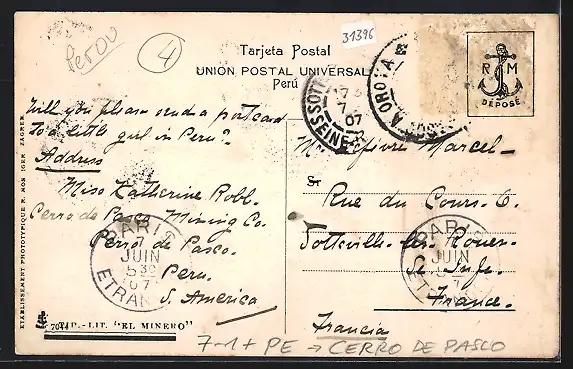 Perou
4
31396
Tarjeta Postal
UNION POSTAL UNIVERSAL
Perú
R M
DÉPOSÉ
OROYA
17
7
07
SEINE
Will you please send a postcard
to a little girl in Peru?
Address
Miss Katherine Robl.
Cerro de Pasco Mining Co.
Cerro de Pasco.
Peru.
S. America
Marcel
Sr.
Rue du Cours. 6.
Sotteville-les-Rouen.
S. Infe.
France.
Francia
PARIS
7
JUIN
5 30
07
ETRAN
PARIS
JUIN
ETRAN
ETABLISSEMENT PHOTOTYPIQUE R. MOSINGER ZAGREB
7044
TIP.-LIT. "EL MINERO"
7-1+ PE → CERRO DE PASCO